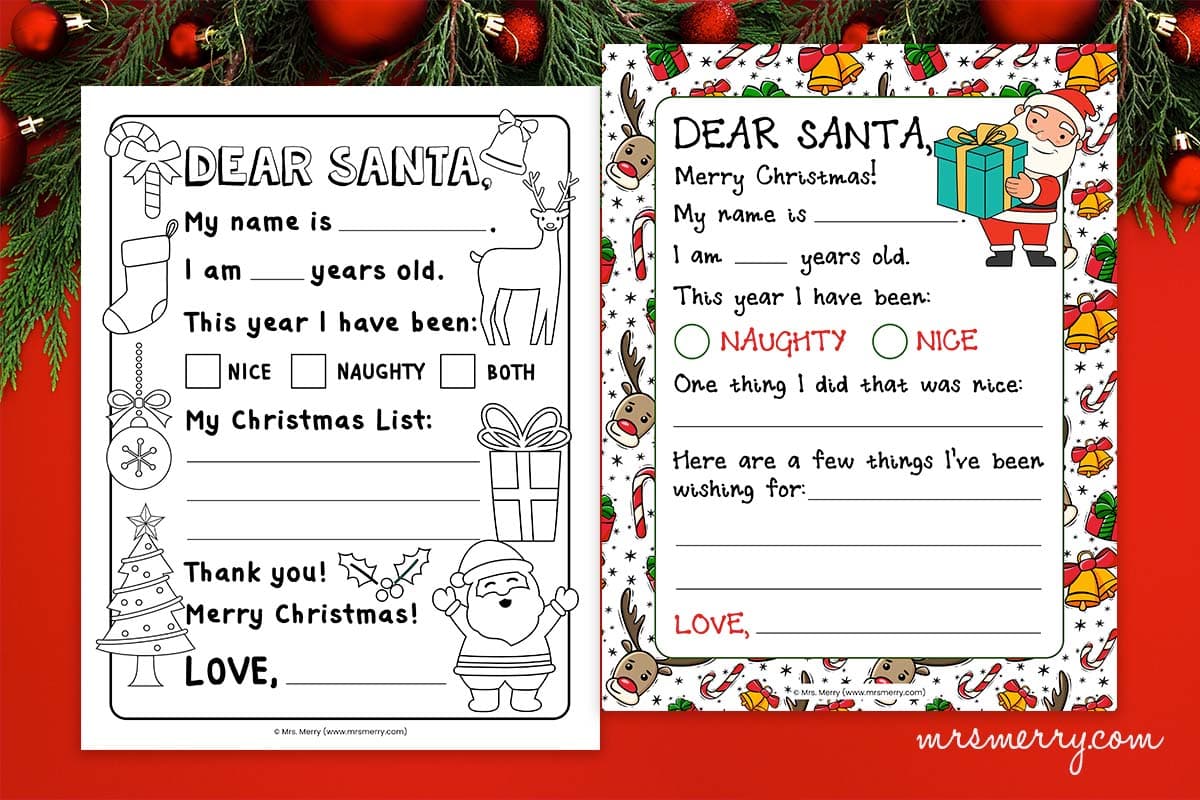 DEAR SANTA,
My name is ____________.
I am ____ years old.
This year I have been:
NICE NAUGHTY BOTH
My Christmas List:
Thank you!
Merry Christmas!
LOVE, ____________
© Mrs. Merry (www.mrsmerry.com)
DEAR SANTA,
Merry Christmas!
My name is ____________.
I am ____ years old.
This year I have been:
NAUGHTY NICE
One thing I did that was nice:
Here are a few things I've been
wishing for:____________
LOVE, ____________
© Mrs. Merry (www.mrsmerry.com)
mrsmerry.com